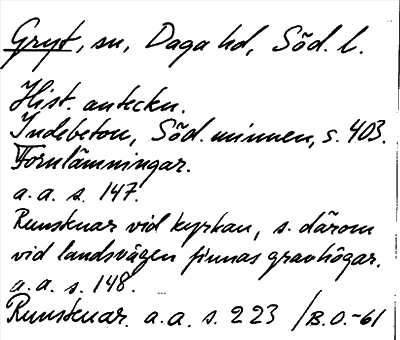 Gryt, sn, Daga hd, Söd. l.
Hist. anteckn.
Indebetou, Söd. minnen, s. 403.
Fornlämningar.
a. a. s. 147.
Runstenar vid kyrkan, s. därom
vid landsvägen finnas gravhögar.
a. a. s. 148.
Runstenar. a. a. s. 223 /B.O.-61